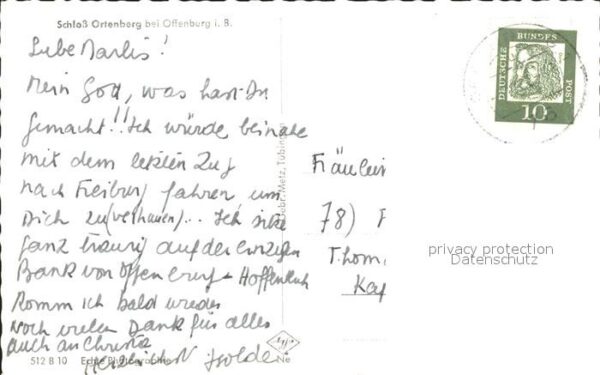 Schloß Ortenberg bei Offenburg i. B.
Liebe Marlis!
Mein Gott, was hast Du
gemacht!! Ich würde beinahe
mit dem letzten Zug
nach Freiburg fahren, um
Dich zu (verhauen)... Ich sitze
ganz traurig auf der einzigen
Bank von Offenburg - Hoffentlich
komm ich bald wieder
Noch vielen Dank für alles
auch an Christa
Herzlichst Isolde
512 B 10 Echte Photographie
Gebr. Metz, Tübingen
Agfa
Ne
DEUTSCHE BUNDESPOST
10
Fräulein
78) F
Thom
Kap
privacy protection
Datenschutz